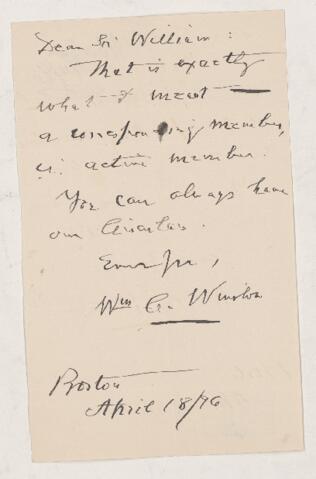 Dear Sir William:
That is exactly
what I meant
a corresponding member,
active member.
You can always have
our Circulars.
Wm
Boston
April 18/96